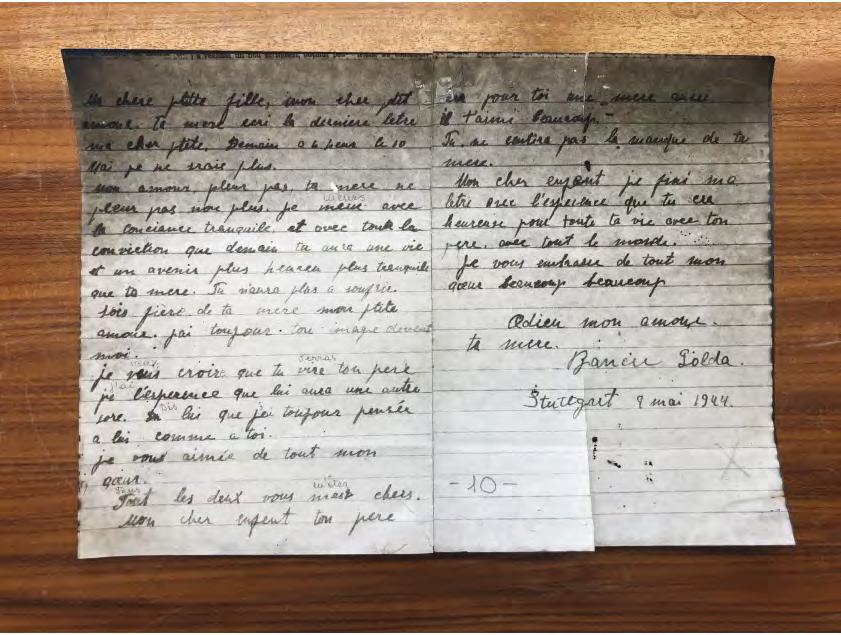 Ma chere ptite fille, mon cher ptit
amour. Ta mere ecri la derniere letre
ma cher ptite, Demain a 6 heur le 10
Mai je ne serais plus.
Mon amour, pleur pas, ta mere ne
pleur pas non plus. je meur avec
meurs
la conciance tranquile et avec toute la
conviction que demain tu aura une vie
et un avenir plus heureu plus tranquile
que ta mere. Tu n'aura plus a soufrir.
Sois fière de ta mere mon ptite
amour. j'ai toujour ton image devent
moi.
je vais croire que tu vere ton pere
veux
verras
je l'esperence que lui aura une autre
j'ai
sore. Di lui que j'ai toujour pensée
Dis
a lui comme a toi.
je vous aimée de tout mon
cœur.
Tout les deux vous m'est chers.
Tous
m'êtes
Mon cher enfent ton pere
era pour toi une mere aussi
il t'aime beaucoup. -
Tu ne sentira pas la manque de ta
mere.
Mon cher enfent je fini ma
letre avec l'esperence que tu era
heureuse pour toute ta vie avec ton
pere, avec tout le monde.
je vous embrasse de tout mon
cœur beaucoup beaucoup
Adieu mon amour.
ta mere.
Bancic Golda.
Stuttgart 9 mai 1944.
-10-